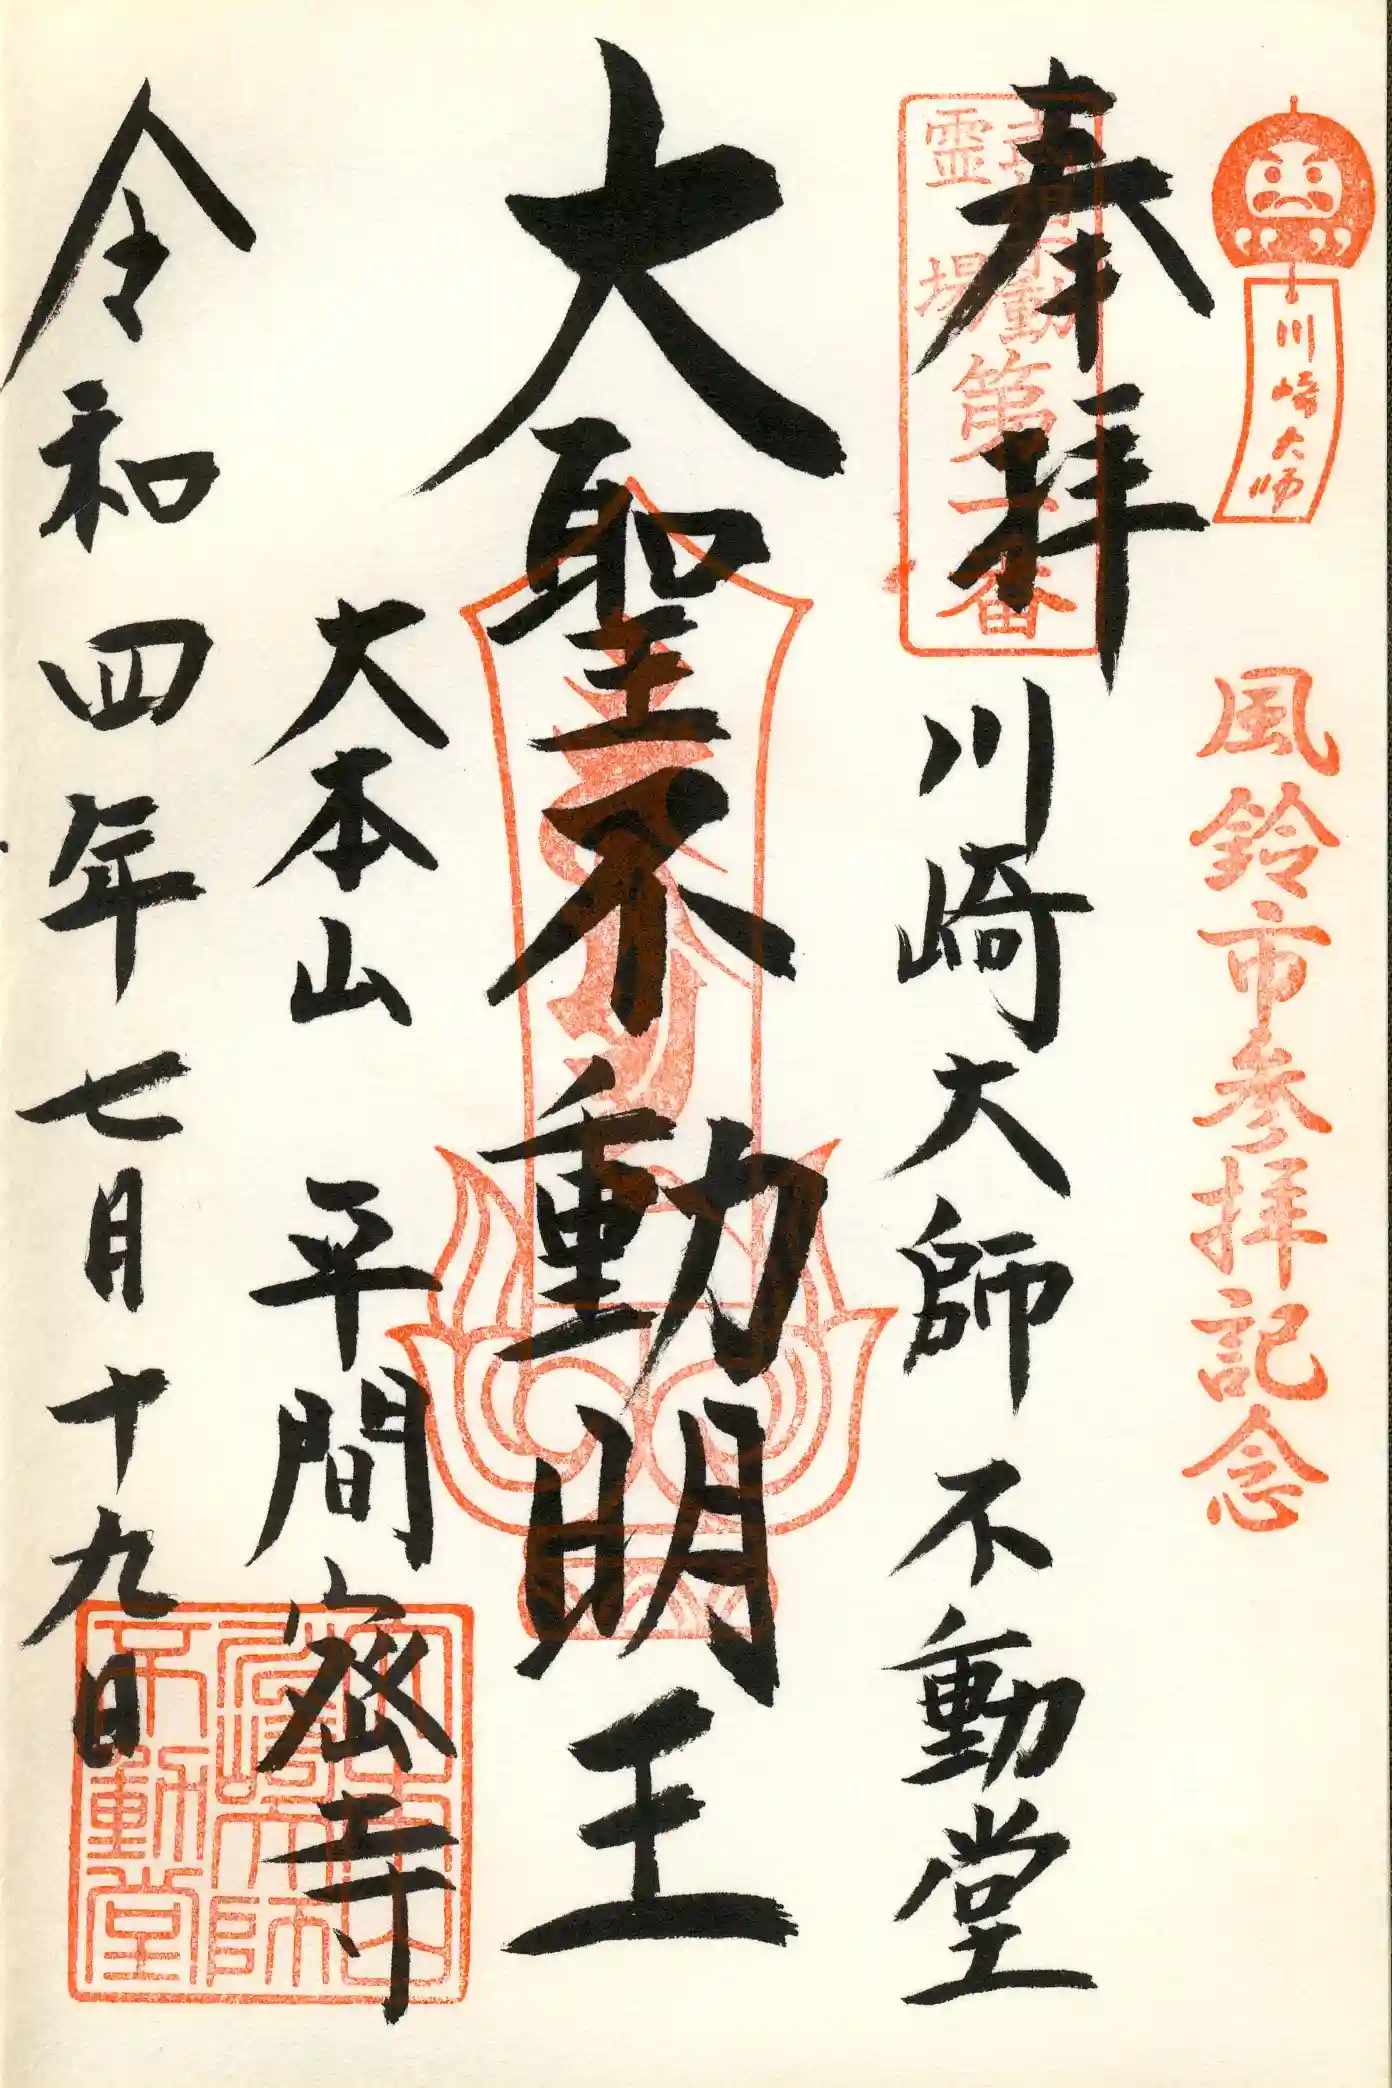 川崎大師
風鈴市参拝記念
奉拝
霊場
第一番
川崎大師 不動堂
大聖不動明王
大本山 平間寺
令和四年七月十九日
川崎大師
不動堂